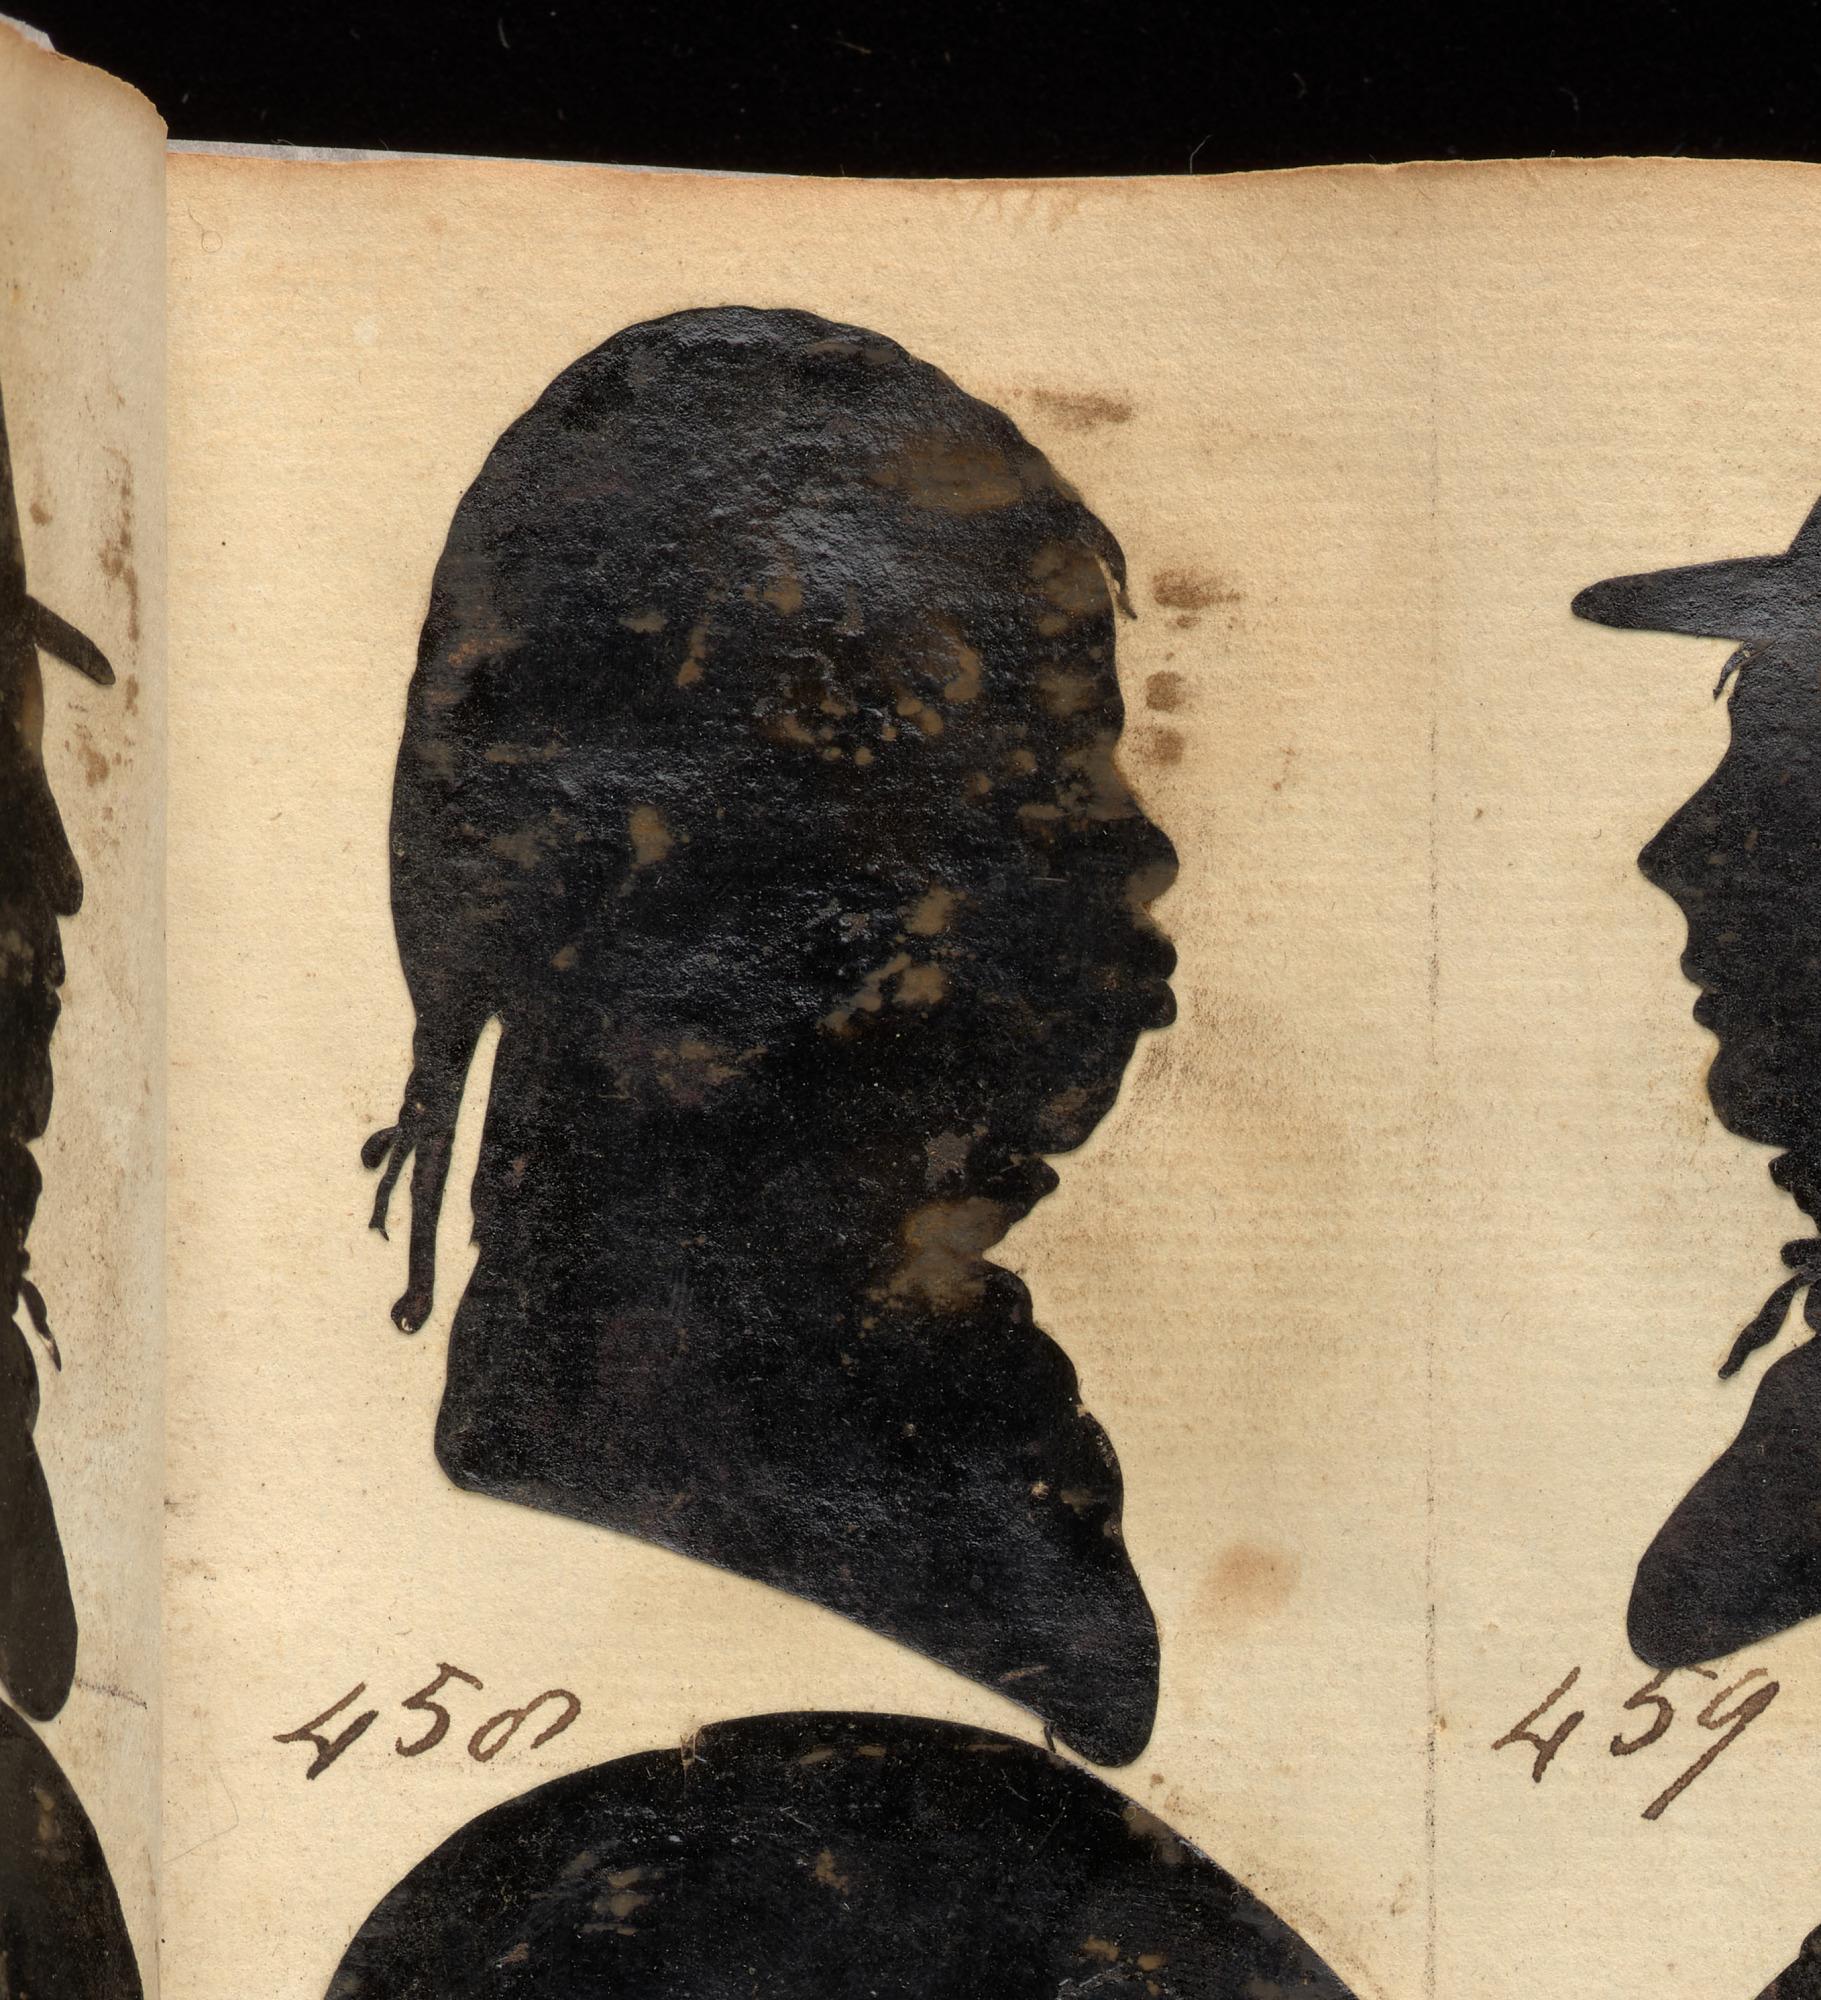 458
459